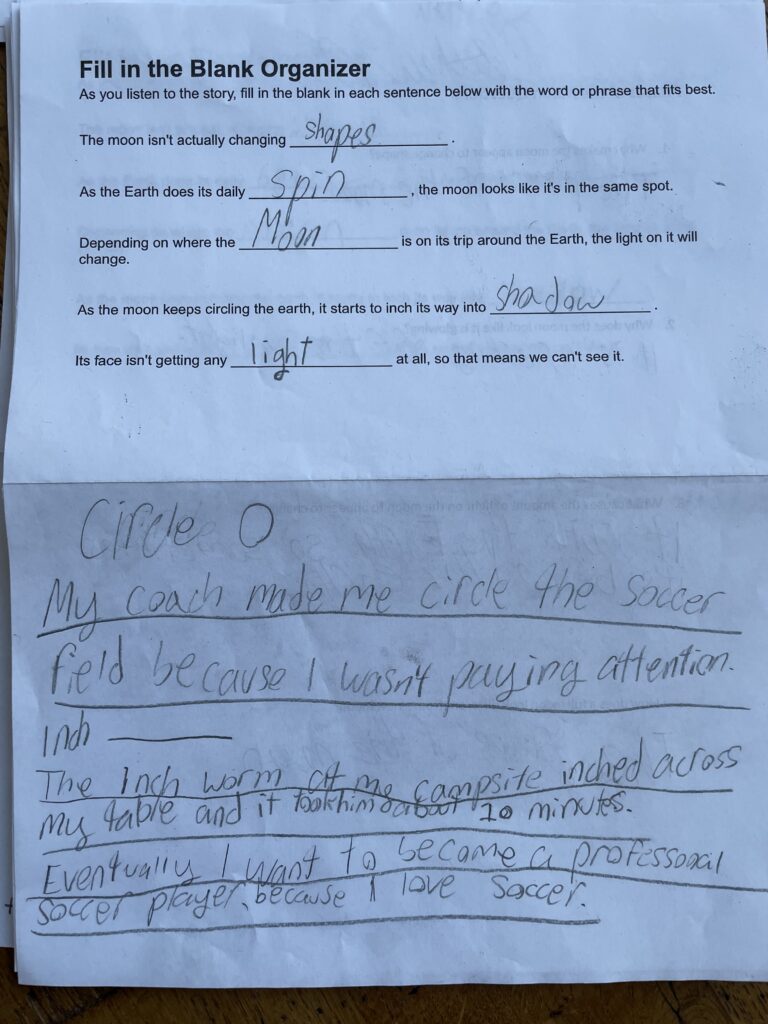 Fill in the Blank Organizer
As you listen to the story, fill in the blank in each sentence below with the word or phrase that fits best.
The moon isn't actually changing shapes.
As the Earth does its daily spin, the moon looks like it's in the same spot.
Depending on where the Moon is on its trip around the Earth, the light on it will
change.
As the moon keeps circling the earth, it starts to inch its way into shadow.
Its face isn't getting any light at all, so that means we can't see it.
Circle O
My coach made me circle the soccer
field because I wasn't paying attention.
Inch
The Inch worm at my campsite inched across
my table and it took him about 20 minutes.
Eventually I want to become a professonal
soccer player, because I love soccer.